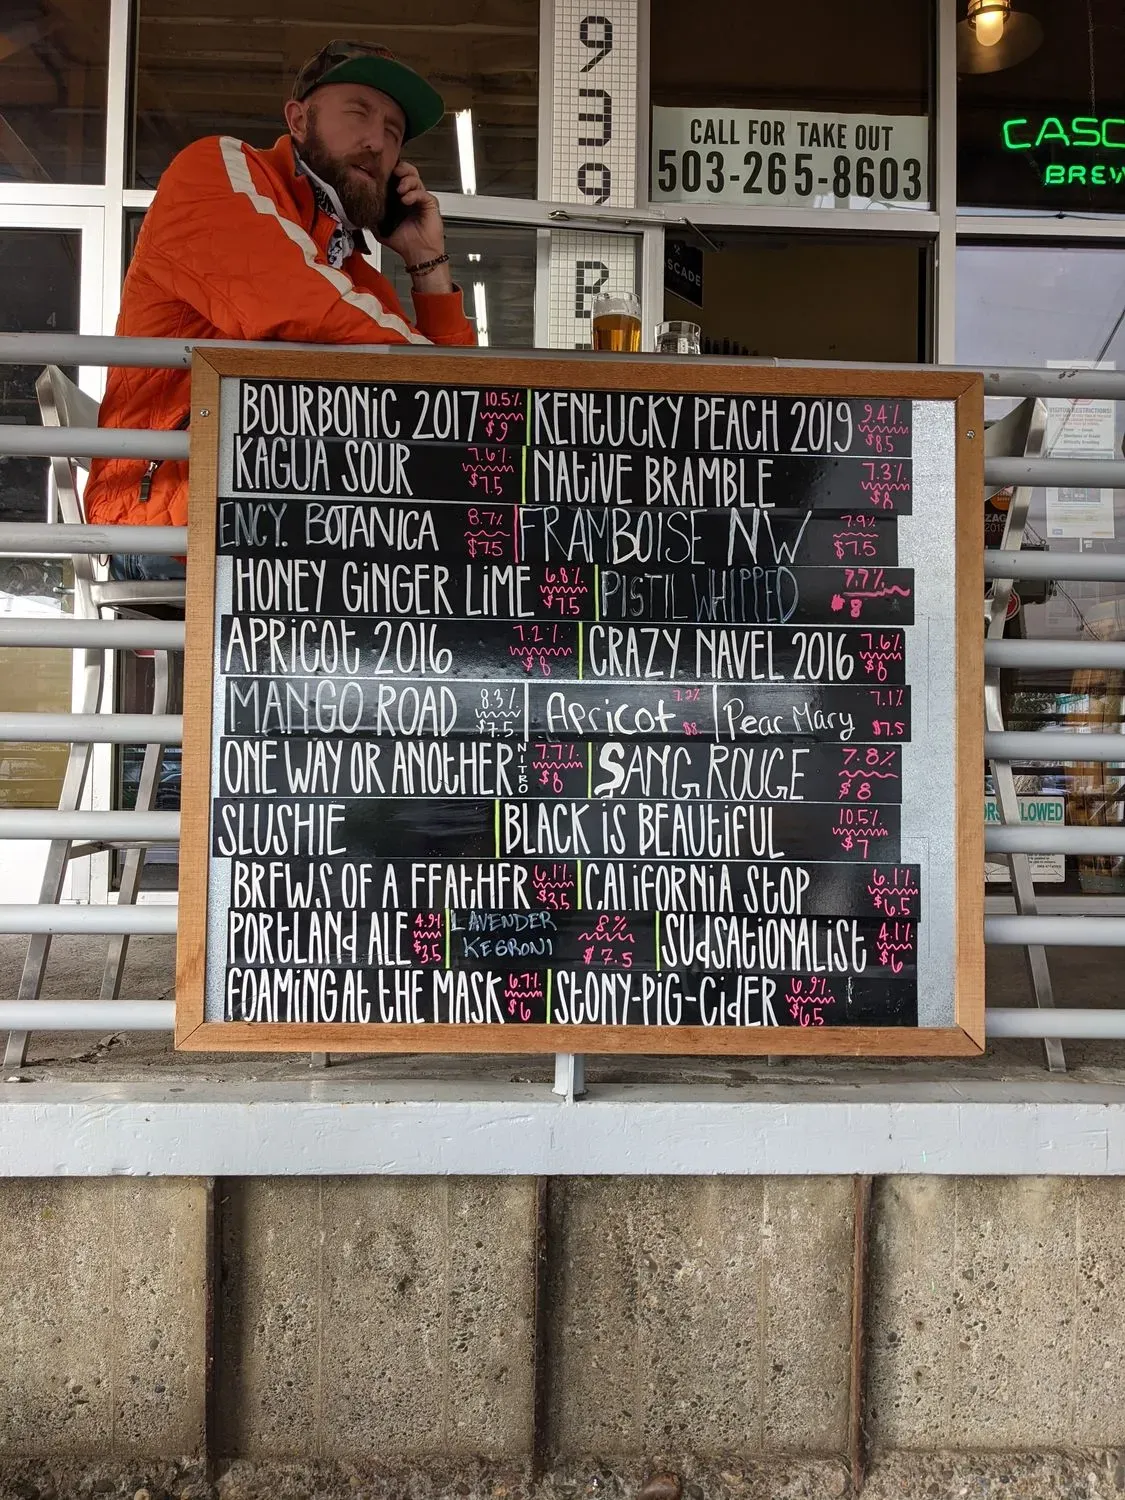 939
CALL FOR TAKE OUT
503-265-8603
CASC
BREW
B
SCADE
4
BOURBONIC 2017 10.5% $9 KENTUCKY PEACH 2019 9.4% $8.5
KAGUA SOUR 7.6% $7.5 NATIVE BRAMBLE 7.3% $8
ENCY. BOTANICA 8.7% $7.5 FRAMBOISE NW 7.9% $7.5
HONEY GINGER LIME 6.8% $7.5 PISTIL WHIPPED 7.7% $8
APRICOT 2016 7.2% $8 CRAZY NAVEL 2016 7.6% $8
MANGO ROAD 8.3% $7.5 Apricot 7.2% $8. Pear Mary 7.1% $7.5
ONE WAY OR ANOTHER NITRO 7.7% $8 SANG ROUGE 7.8% $8
SLUSHIE BLACK IS BEAUTIFUL 10.5% $7
BREWS OF A FFATHER 6.1% $3.5 CALIFORNIA STOP 6.1% $6.5
PORTLANd ALE 4.9% $3.5 LAVENDER KEGRONI 8% $7.5 SUdSATIONALIST 4.1% $6
FOAMING AT THE MASK 6.7% $6 STONY-PIG-CIdER 6.9% $6.5
LOWED